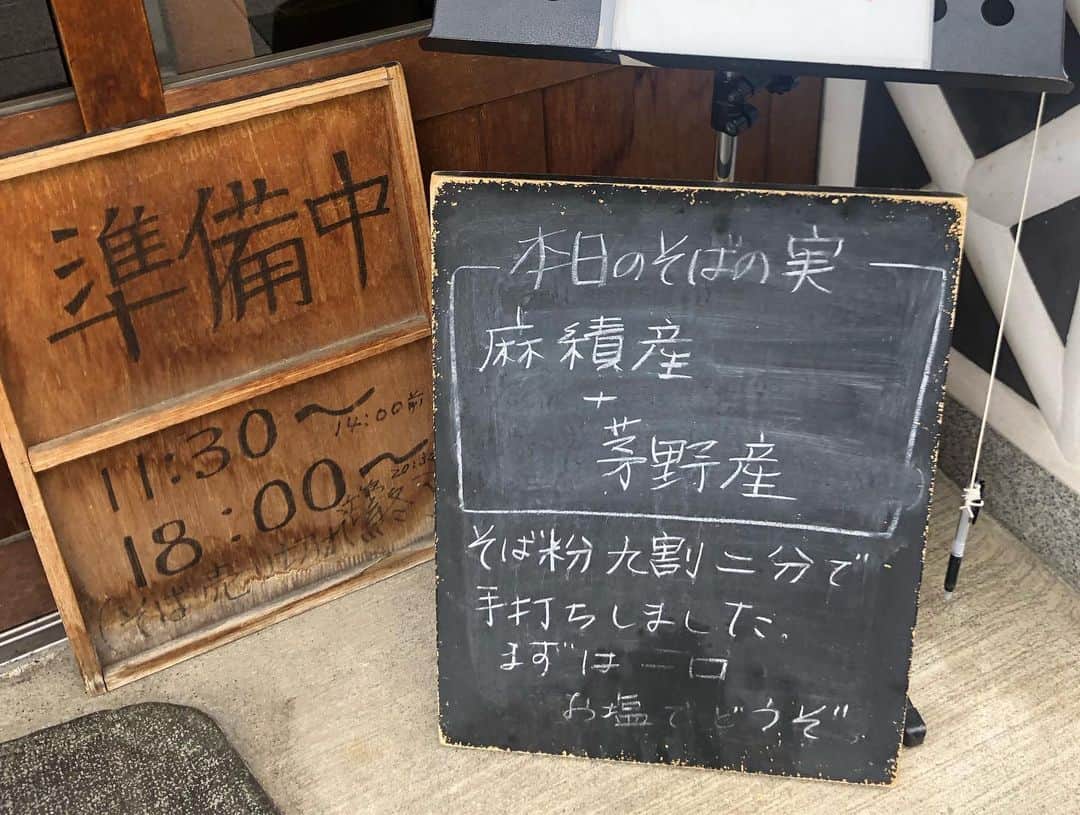 準備中
11:30〜14:00前
18:00〜20:30
そば売
本日のそばの実
麻績産
+
茅野産
そば粉九割二分で
手打ちしました。
まずは一口
お塩でどうぞ